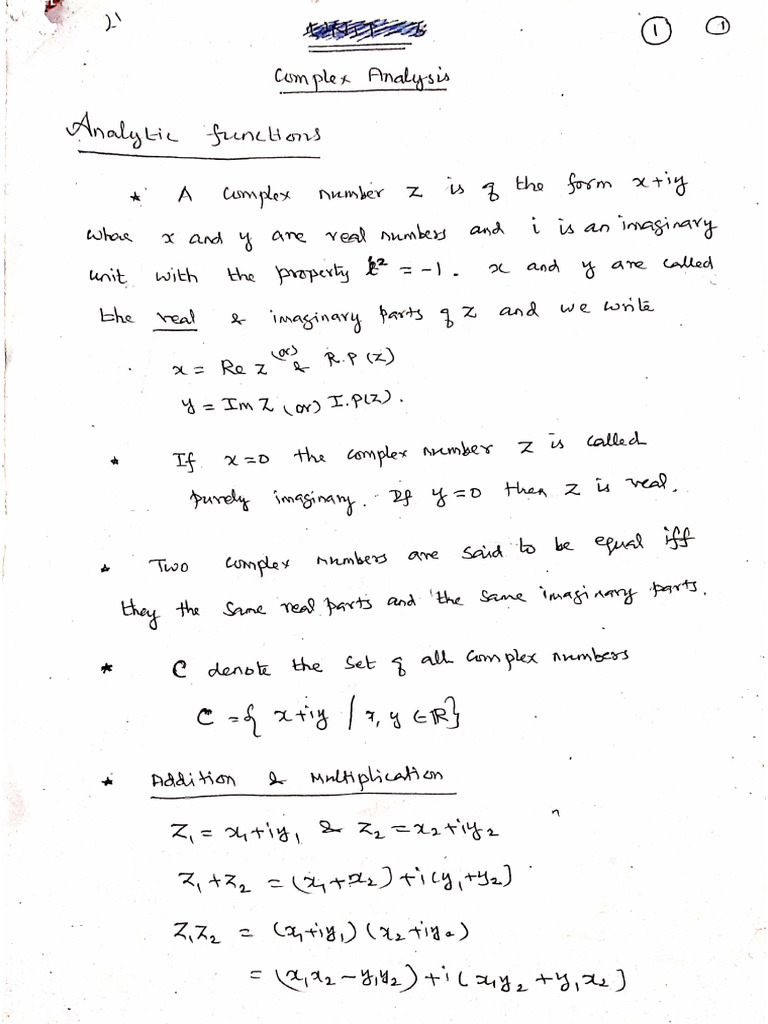 1 1
Complex Analysis
Analytic functions
* A complex number z is of the form x+iy
where x and y are real numbers and i is an imaginary
unit with the property i² = -1. x and y are called
the real & imaginary parts of z and we write
x = Re z (or) & R.P (z)
y = Im z (or) I.P(z).
* If x=0 the complex number z is called
purely imaginary. If y=0 then z is real.
* Two complex numbers are said to be equal iff
they the same real parts and the same imaginary parts.
* C denote the set of all complex numbers
C = { x+iy / x, y ∈ ℝ}
* Addition & Multiplication
z₁ = x₁+iy₁ & z₂ = x₂+iy₂
z₁+z₂ = (x₁+x₂)+i(y₁+y₂)
z₁z₂ = (x₁+iy₁)(x₂+iy₂)
= (x₁x₂-y₁y₂)+i(x₁y₂+y₁x₂)